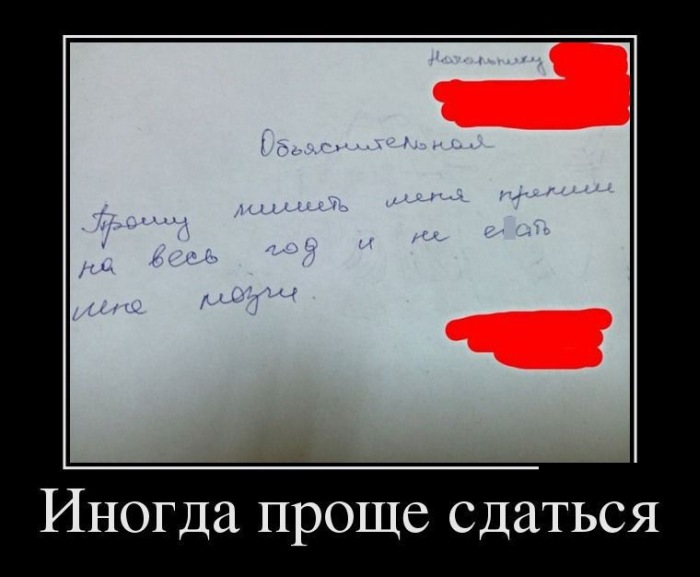 Начальнику
Объяснительная
Прошу лишить меня премии
на весь год и не е ать
мне мозги.
Иногда проще сдаться